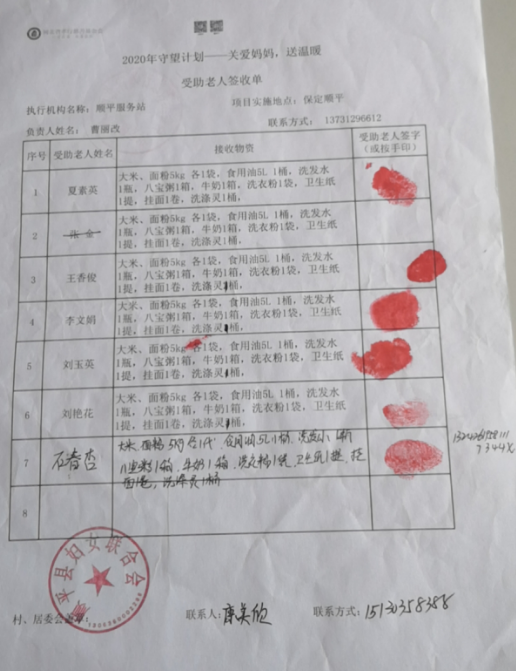 2020年守望计划——关爱妈妈，送温暖
受助老人签收单
执行机构名称：顺平服务站 项目实施地点：保定顺平
负责人姓名：曹丽改 联系方式：13731296612
序号 受助老人姓名 接收物资 受助老人签字（或按手印）
1 夏素英 大米、面粉5kg 各1袋，食用油5L 1桶，洗发水
1瓶，八宝粥1箱，牛奶1箱，洗衣粉1袋，卫生纸
1提，挂面1卷，洗涤灵1桶，
2 大米、面粉5kg 各1袋，食用油5L 1桶，洗发水
1瓶，八宝粥1箱，牛奶1箱，洗衣粉1袋，卫生纸
1提，挂面1卷，洗涤灵1桶，
3 王香俊 大米、面粉5kg 各1袋，食用油5L 1桶，洗发水
1瓶，八宝粥1箱，牛奶1箱，洗衣粉1袋，卫生纸
1提，挂面1卷，洗涤灵1桶，
4 李文娟 大米、面粉5kg 各1袋，食用油5L 1桶，洗发水
1瓶，八宝粥1箱，牛奶1箱，洗衣粉1袋，卫生纸
1提，挂面1卷，洗涤灵1桶，
5 刘玉英 大米、面粉5kg 各1袋，食用油5L 1桶，洗发水
1瓶，八宝粥1箱，牛奶1箱，洗衣粉1袋，卫生纸
1提，挂面1卷，洗涤灵1桶，
6 刘艳花 大米、面粉5kg 各1袋，食用油5L 1桶，洗发水
1瓶，八宝粥1箱，牛奶1箱，洗衣粉1袋，卫生纸
1提，挂面1卷，洗涤灵1桶，
7 大米 面粉 5kg 各1代 食用油5L1桶，洗发水1瓶
八宝粥1箱，牛奶1箱，洗衣粉1袋，卫生纸1提，挂
面1卷，洗涤灵1桶
8
顺平县妇女联合会
村、居委会 联系人： 联系方式：15130358388